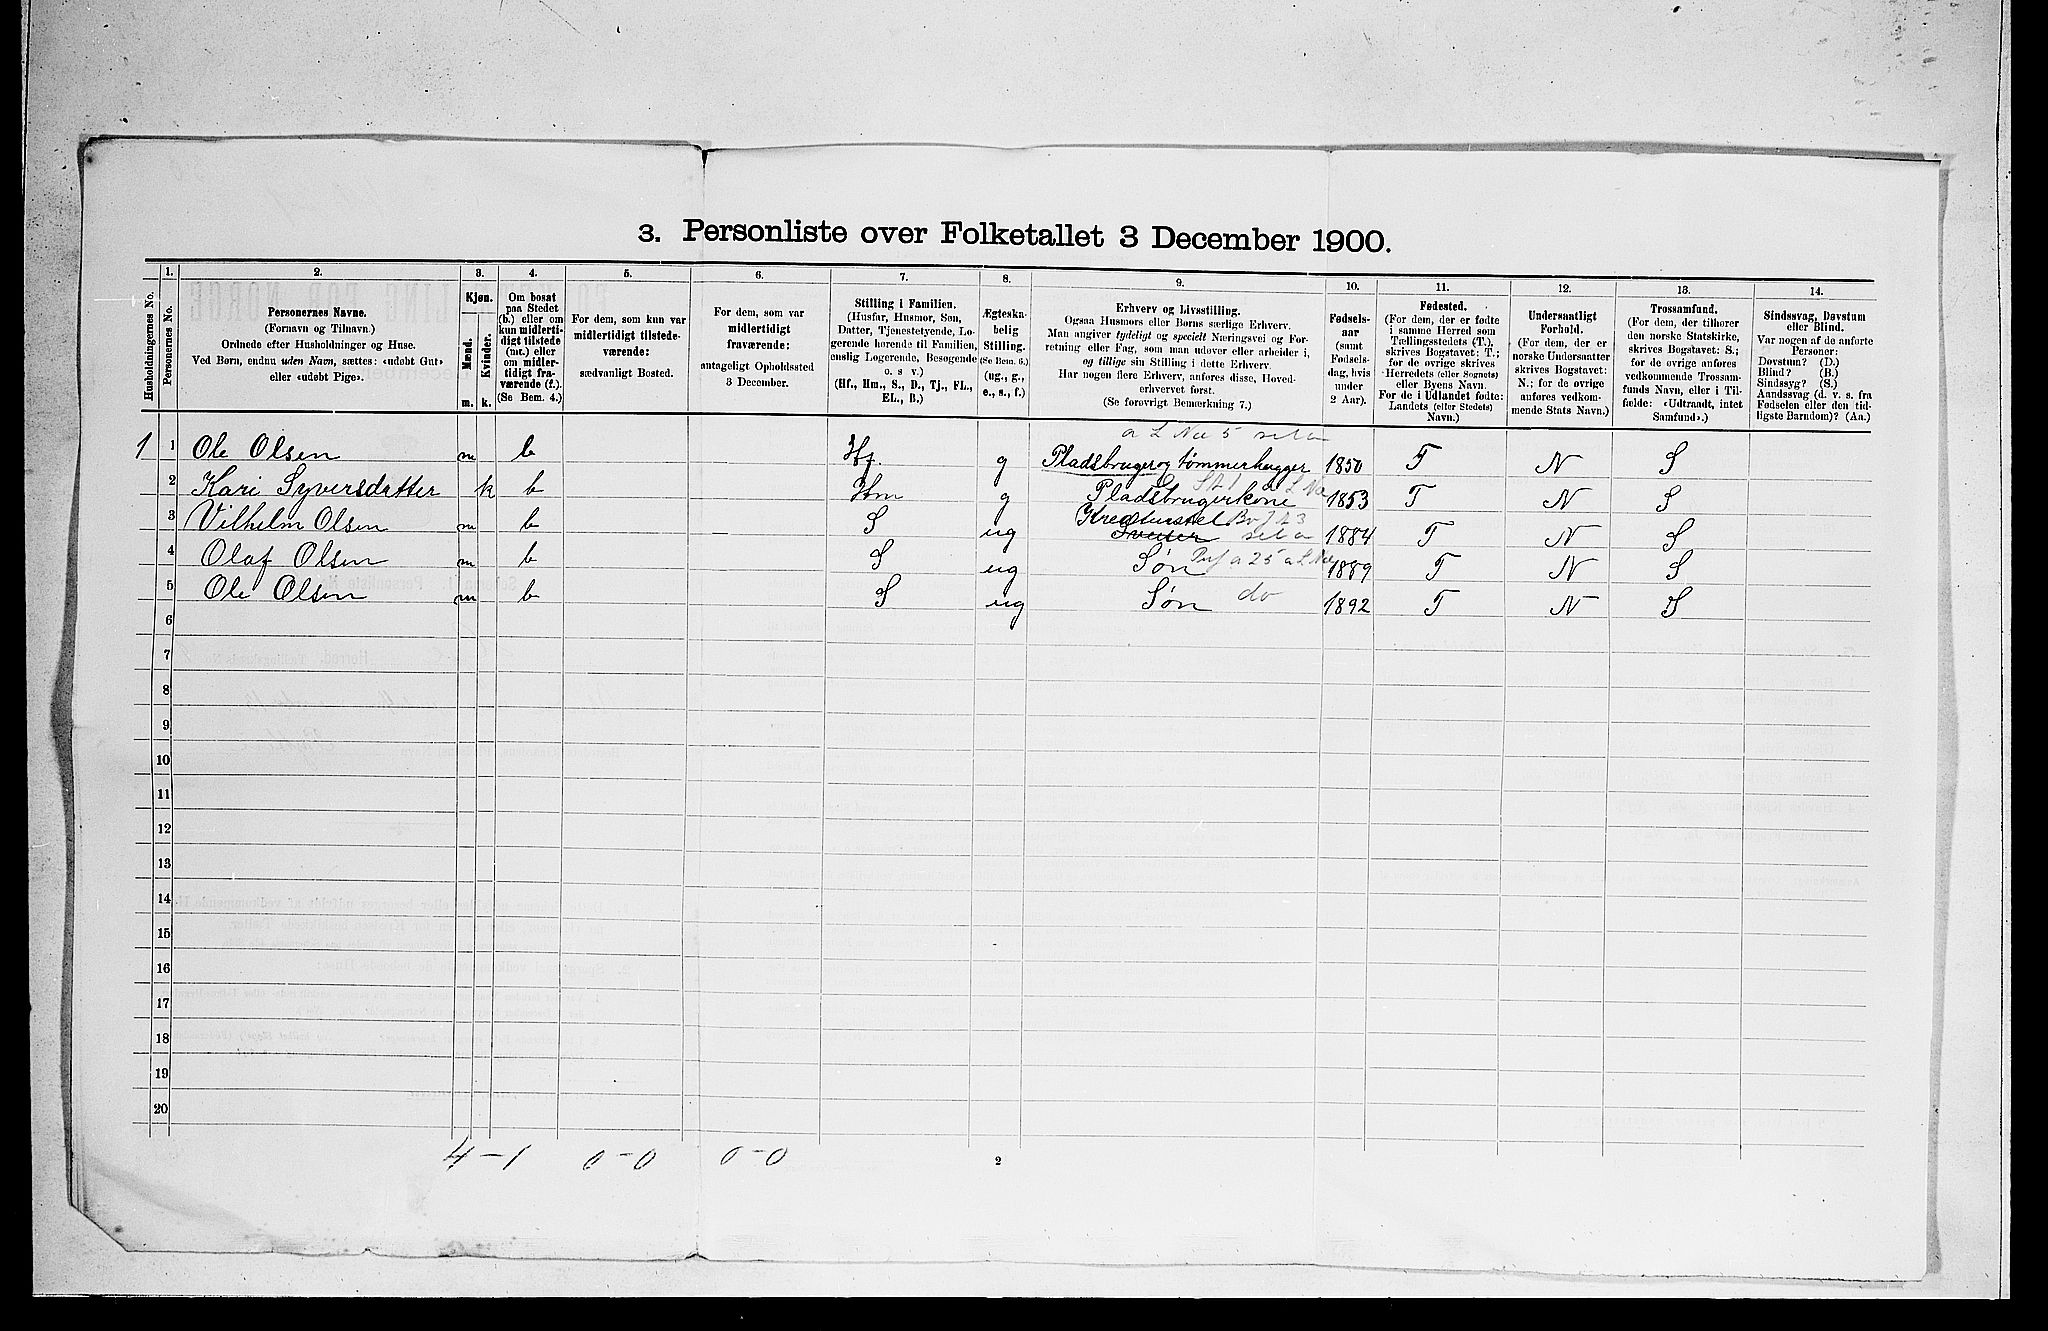 3. Personliste over Folketallet 3 December 1900.
Husholdningernes No.
1.
Personernes No.
2.
Personernes Navne.
(Fornavn og Tilnavn.)
Ordnede efter Husholdninger og Huse.
Ved Børn, endnu uden Navn, sættes: «udøbt Gut»
eller «udøbt Pige».
3.
Kjøn.
Mænd.
Kvinder.
m. k.
4.
Om bosat
paa Stedet
(b.) eller om
kun midlerti-
digt tilstede
(mt.) eller
om midler-
tidigt fra-
værende (f.).
(Se Bem. 4.)
5.
For dem, som kun var
midlertidigt tilstede-
værende:
sædvanligt Bosted.
6.
For dem, som var
midlertidigt
fraværende:
antageligt Opholdssted
3 December.
7.
Stilling i Familien.
(Husfar, Husmor, Søn,
Datter, Tjenestetyende, Lo-
gerende hørende til Familien,
enslig Logerende, Besøgende
o. s v.)
(Hf., Hm., S., D., Tj., FL.,
EL., B.)
8.
Ægteska-
belig
Stilling.
(Se Bem. 6.)
(ug., g.,
e., s., f.)
9.
Erhverv og Livsstilling.
Ogsaa Husmors eller Børns særlige Erhverv.
Man angiver tydeligt og specielt Næringsvei og For-
retning eller Fag, som man udøver eller arbeider i,
og tillige sin Stilling i dette Erhverv.
Har nogen flere Erhverv, anføres disse, Hoved-
erhvervet først.
(Se forøvrigt Bemærkning 7.)
10.
Fødsels-
aar
(samt
Fødsels-
dag, hvis
under
2 Aar).
11.
Fødested.
(For dem, der er fødte
i samme Herred som
Tællingsstedets (T.),
skrives Bogstavet: T.;
for de øvrige skrives
Herredets (eller Sognets)
eller Byens Navn.
For de i Udlandet fødte:
Landets (eller Stedets)
Navn.)
12.
Undersaatligt
Forhold.
(For dem, der er
norske Undersaatter
skrives Bogstavet:
N.; for de øvrige
anføres vedkom-
mende Stats Navn.)
13.
Trossamfund.
(For dem, der tilhører
den norske Statskirke,
skrives Bogstavet: S.;
for de øvrige anføres
vedkommende Trossam-
funds Navn, eller i Til-
fælde: «Udtraadt, intet
Samfund».)
14.
Sindssvag, Døvstum
eller Blind.
Var nogen af de anførte
Personer:
Døvstum? (D.)
Blind? (B.)
Sindssyg? (S.)
Aandssvag (d. v. s. fra
Fødselen eller den tid-
ligste Barndom)? (Aa.)
1 1 Ole Olsen m b Hf. g Pladsbruger og tømmerhugger 1850 T N S
2 Kari Syversdatter k b Hm g Pladsbrugerkone 1853 T N S
3 Vilhelm Olsen m b S ug Kreaturstel 1884 T N S
4 Olaf Olsen m b S ug Søn 1889 T N S
5 Ole Olsen m b S ug Søn do 1892 T N S
6
7
8
9
10
11
12
13
14
15
16
17
18
19
20
4 - 1 0 - 0 0 - 0
2